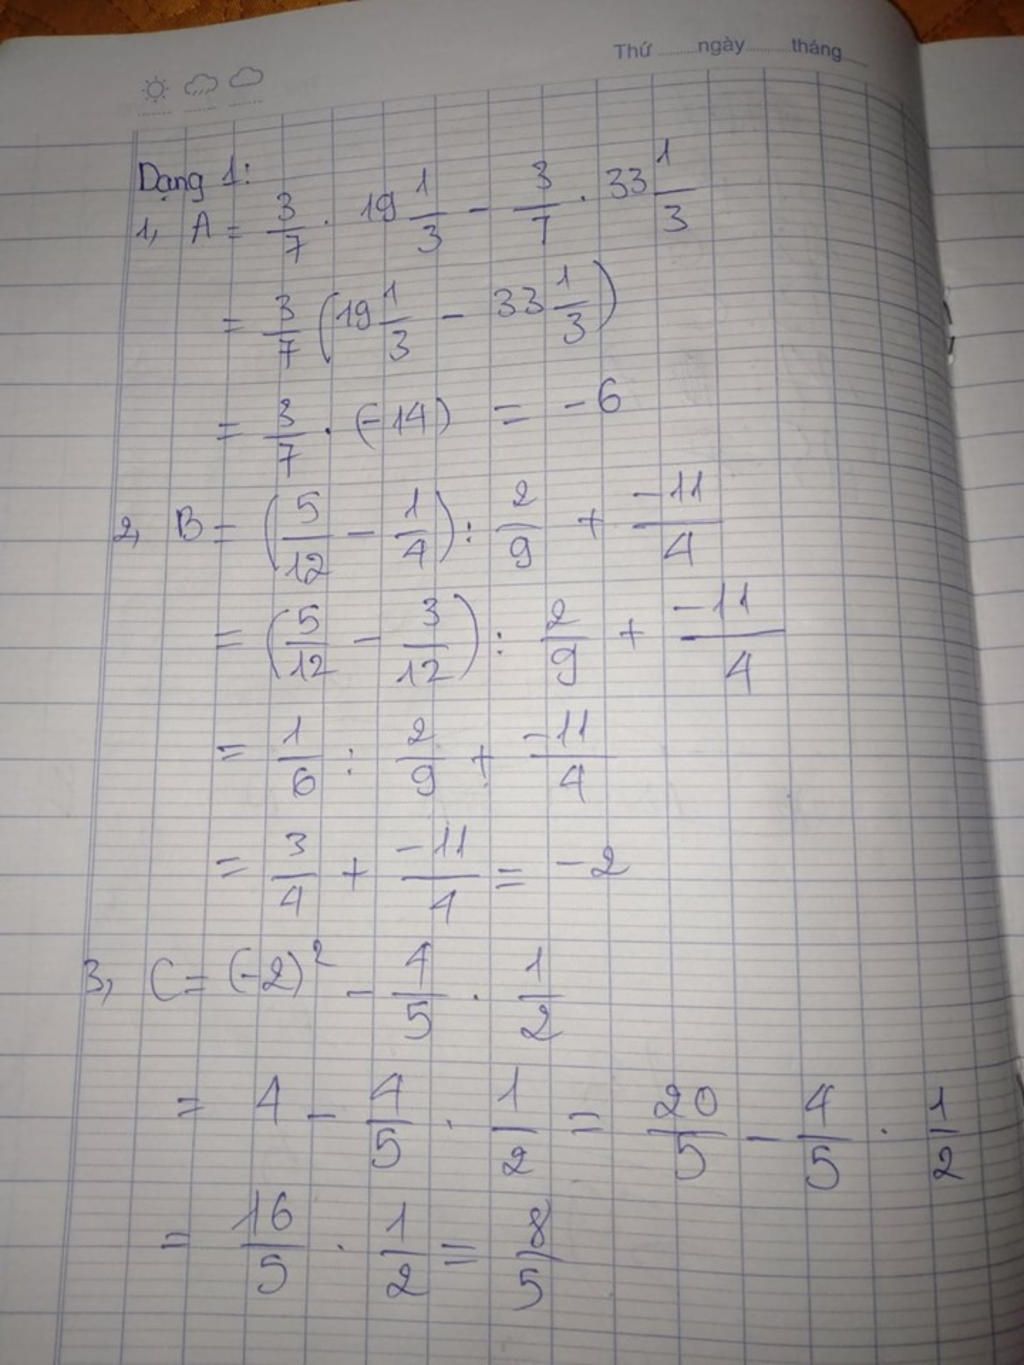 Thứ ........ ngày ........ tháng
Dạng 1:
1, A = 3/7 . 19 1/3 - 3/7 . 33 1/3
= 3/7 (19 1/3 - 33 1/3)
= 3/7 . (-14) = -6
2, B = (5/12 - 1/4) : 2/9 + -11/4
= (5/12 - 3/12) : 2/9 + -11/4
= 1/6 : 2/9 + -11/4
= 3/4 + -11/4 = -2
3, C = (-2)² - 4/5 . 1/2
= 4 - 4/5 . 1/2 = 20/5 - 4/5 . 1/2
= 16/5 . 1/2 = 8/5